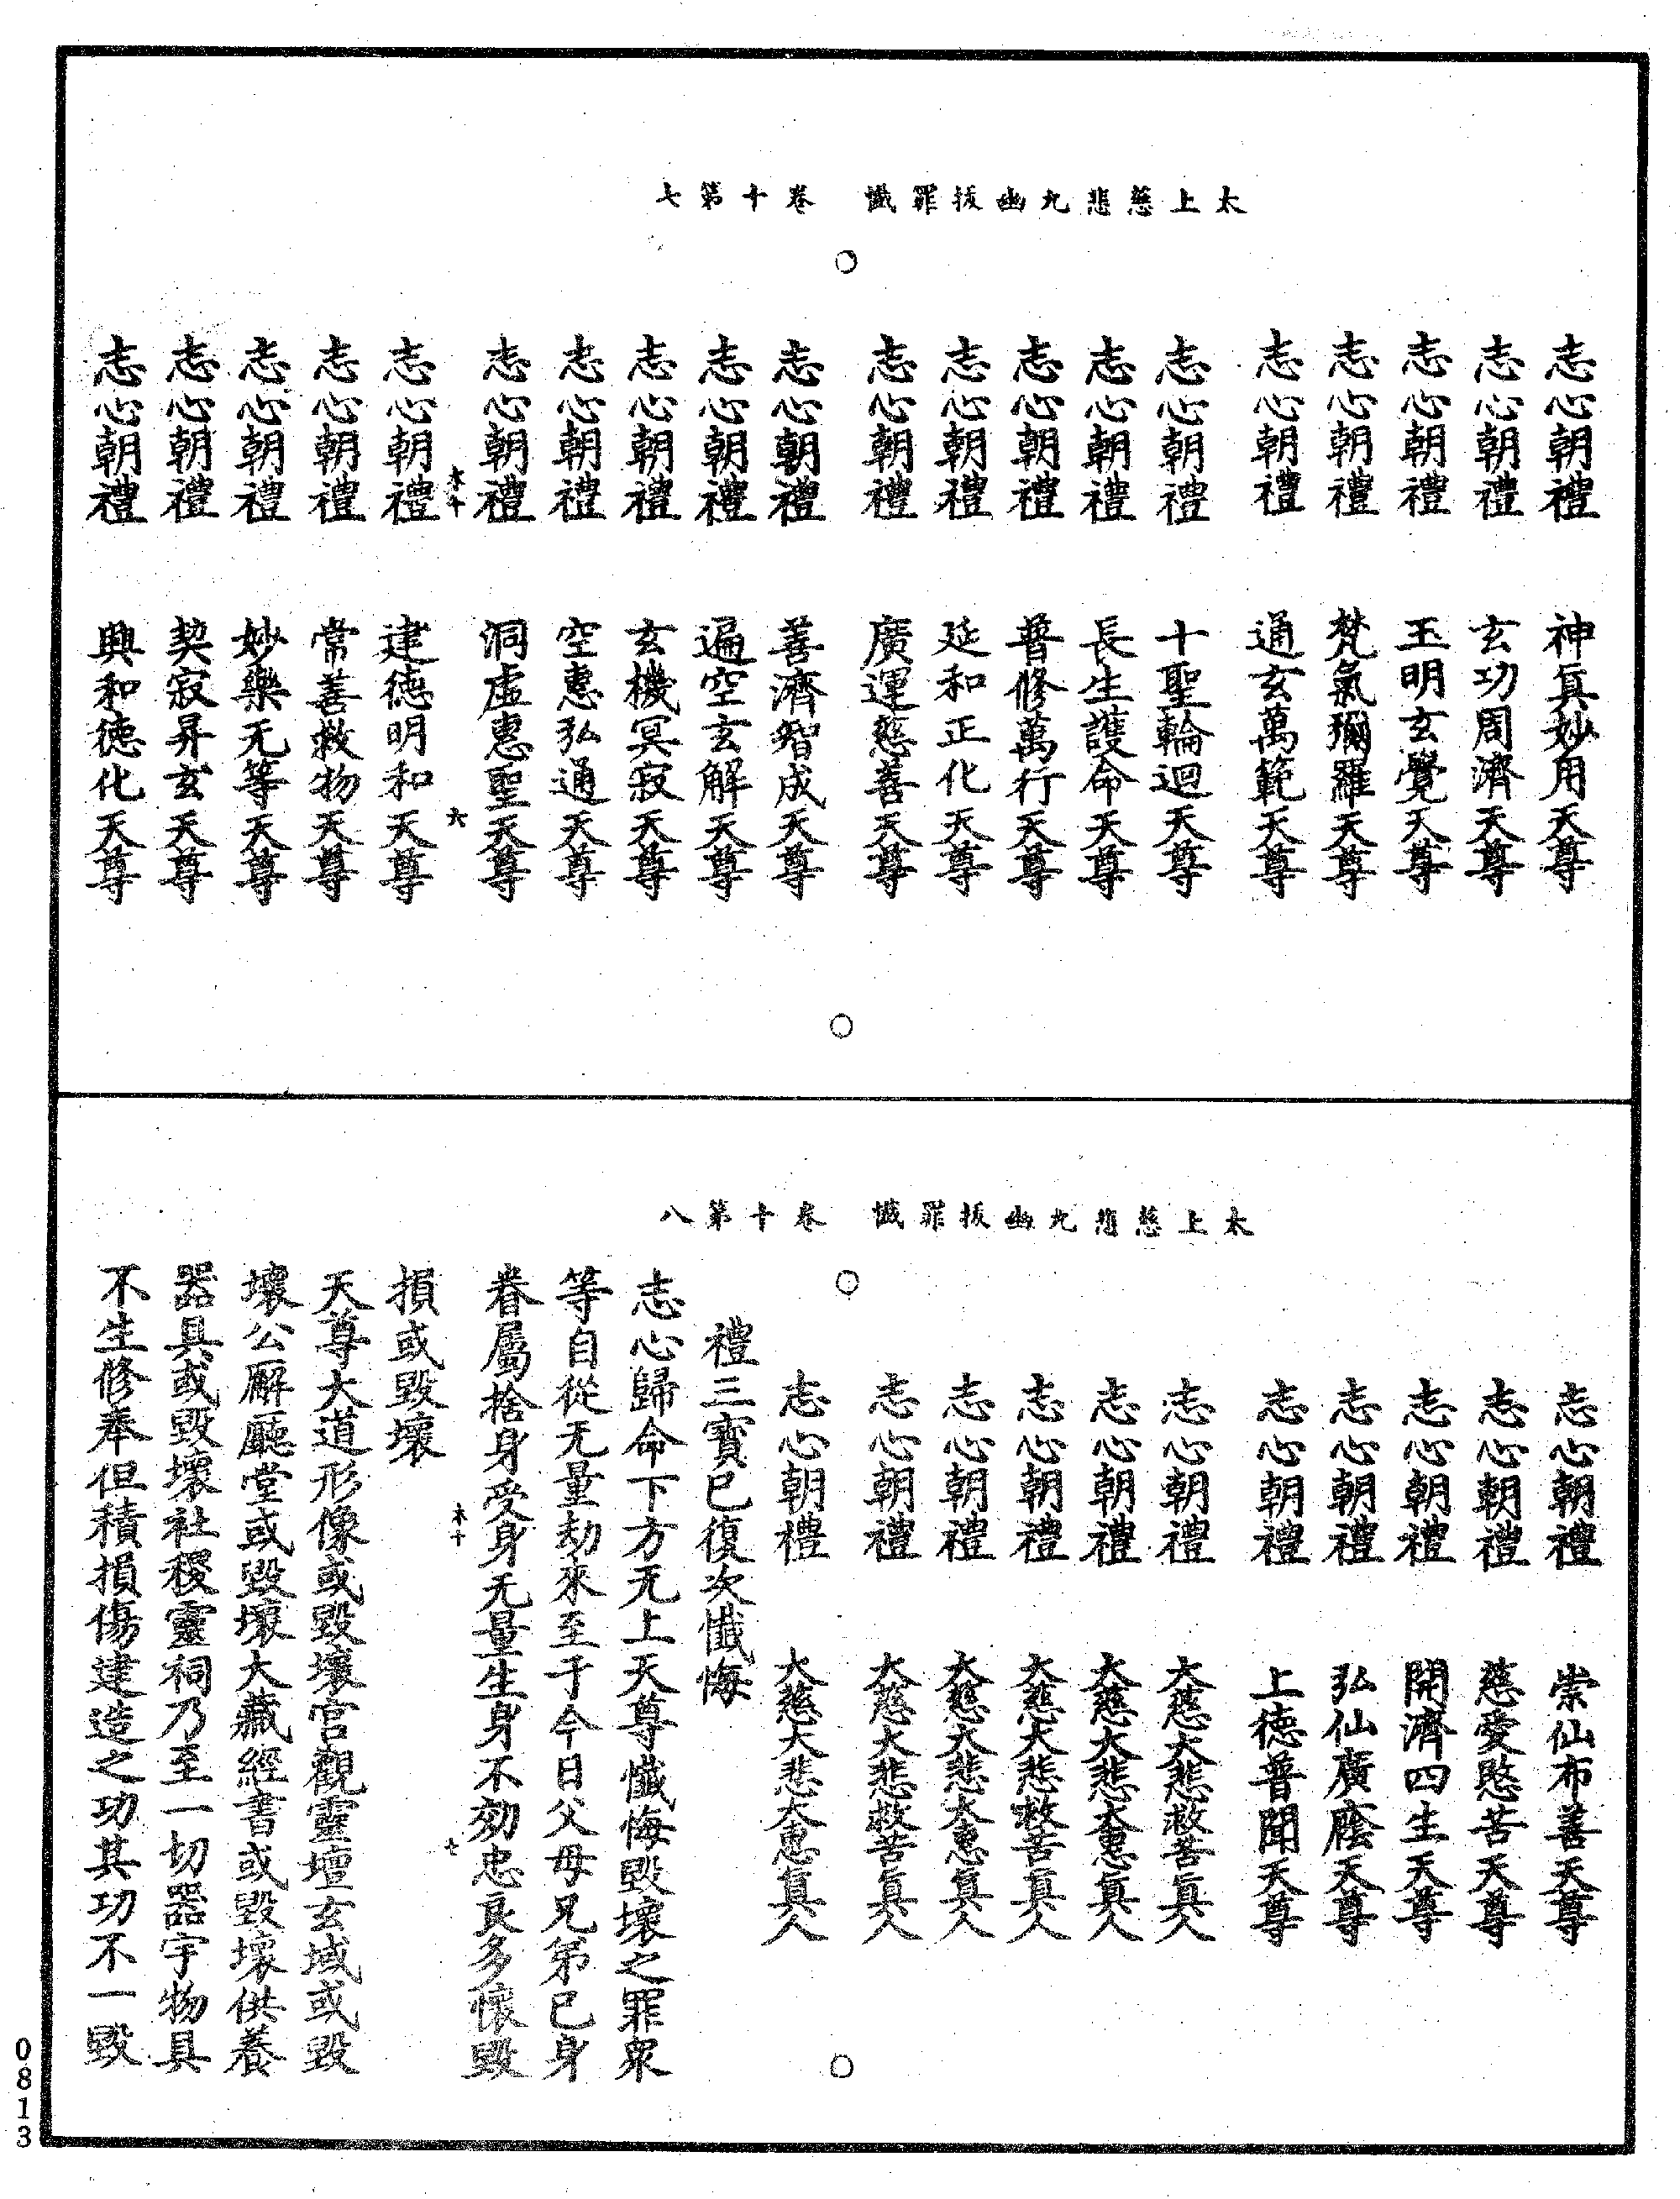 太上慈悲九幽拔罪懺　卷十第七
志心朝禮　神真妙用天尊
志心朝禮　玄功周濟天尊
志心朝禮　玉明玄覺天尊
志心朝禮　梵氣彌羅天尊
志心朝禮　通玄萬範天尊
志心朝禮　十聖輪迴天尊
志心朝禮　長生護命天尊
志心朝禮　普修萬行天尊
志心朝禮　延和正化天尊
志心朝禮　廣運慈善天尊
志心朝禮　善濟智成天尊
志心朝禮　遍空玄解天尊
志心朝禮　玄機冥寂天尊
志心朝禮　空惠弘通天尊
志心朝禮　洞虛惠聖天尊
木十　六
志心朝禮　建德明和天尊
志心朝禮　常善救物天尊
志心朝禮　妙樂无等天尊
志心朝禮　契寂昇玄天尊
志心朝禮　興和德化天尊
太上慈悲九幽拔罪懺　卷十第八
志心朝禮　崇仙布善天尊
志心朝禮　慈愛愍苦天尊
志心朝禮　開濟四生天尊
志心朝禮　弘仙廣廕天尊
志心朝禮　上德普聞天尊
志心朝禮　大慈大悲救苦真人
志心朝禮　大慈大悲大惠真人
志心朝禮　大慈大悲救苦真人
志心朝禮　大慈大悲大惠真人
志心朝禮　大慈大悲救苦真人
志心朝禮　大慈大悲大惠真人
禮三寶已復次懺悔
志心歸命下方无上天尊懺悔毀壞之罪衆
等自從无量劫來至于今日父母兄弟已身
眷屬捨身受身无量生身不効忠良多懷毀
木十　七
損或毀壞
天尊大道形像或毀壞宮觀靈壇玄域或毀
壞公廨廳堂或毀壞大藏經書或毀壞供養
器具或毀壞社稷靈祠乃至一切器宇物具
不生修奉但積損傷建造之功其功不一毀
0813